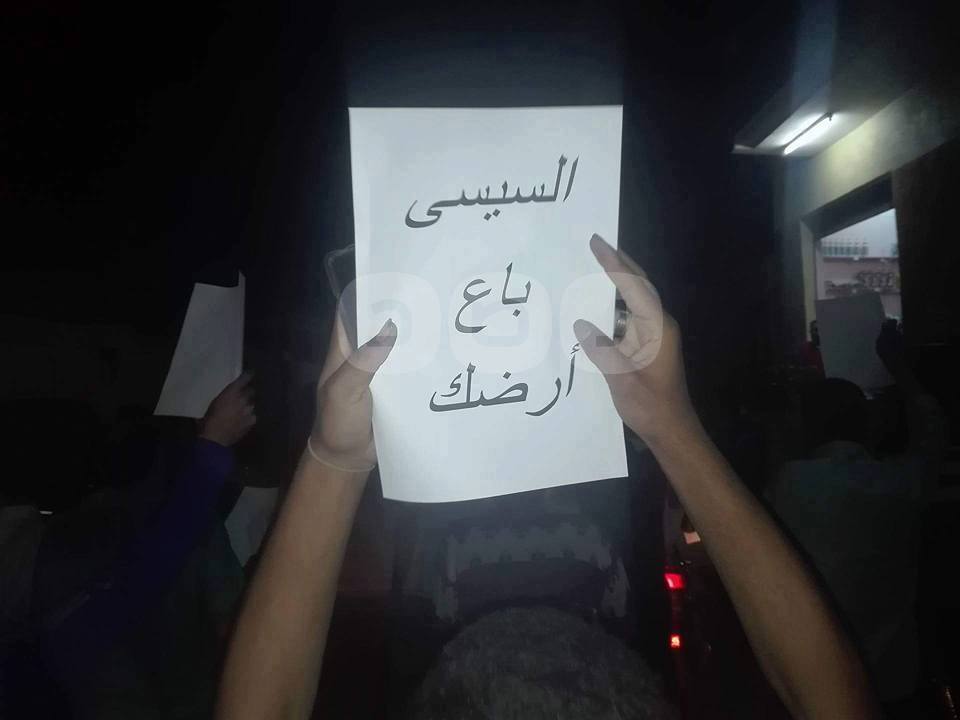 السيسى
باع
أرضك